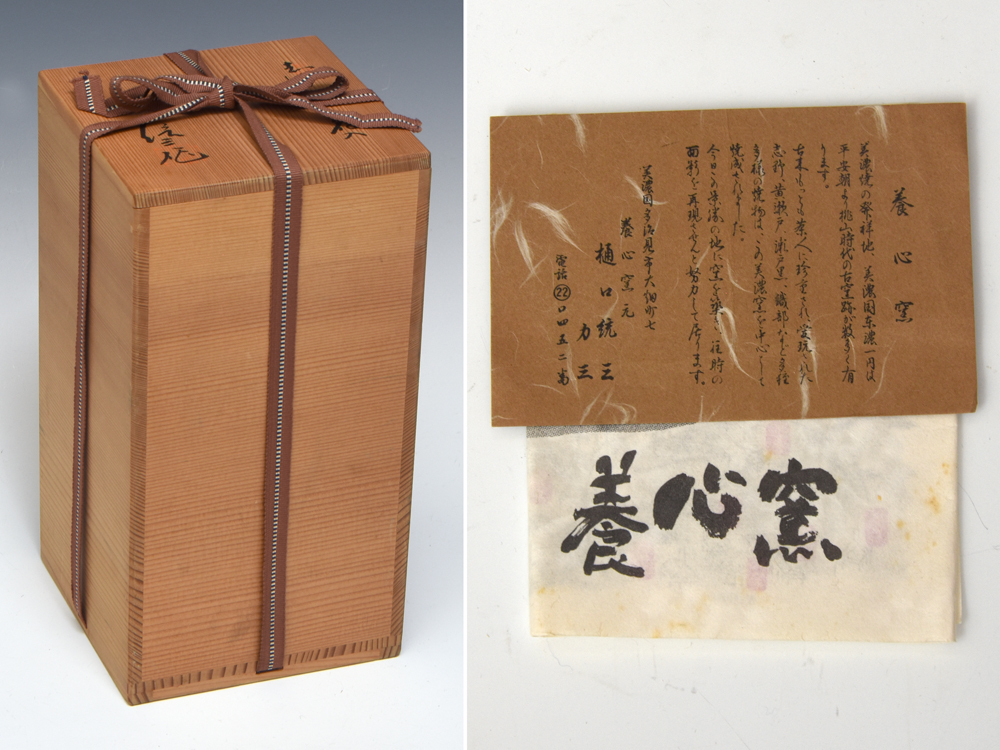 信三作
養心窯
美濃焼の発祥地、美濃国東濃一円は
平安朝より桃山時代の古窯跡が数多く有
ります。
古来もっとも茶人に珍重され、愛玩された
志野、黄瀬戸、瀬戸黒、織部などと多種
多様の焼物は、この美濃窯を中心として
焼成されました。
今日この栄添の地に窯を築き、往時の
面影を再現せんと努力して居ります。
美濃国多治見市大畑町七
養心窯元
樋口統三
力三
電話㉒〇四五二番
養心窯